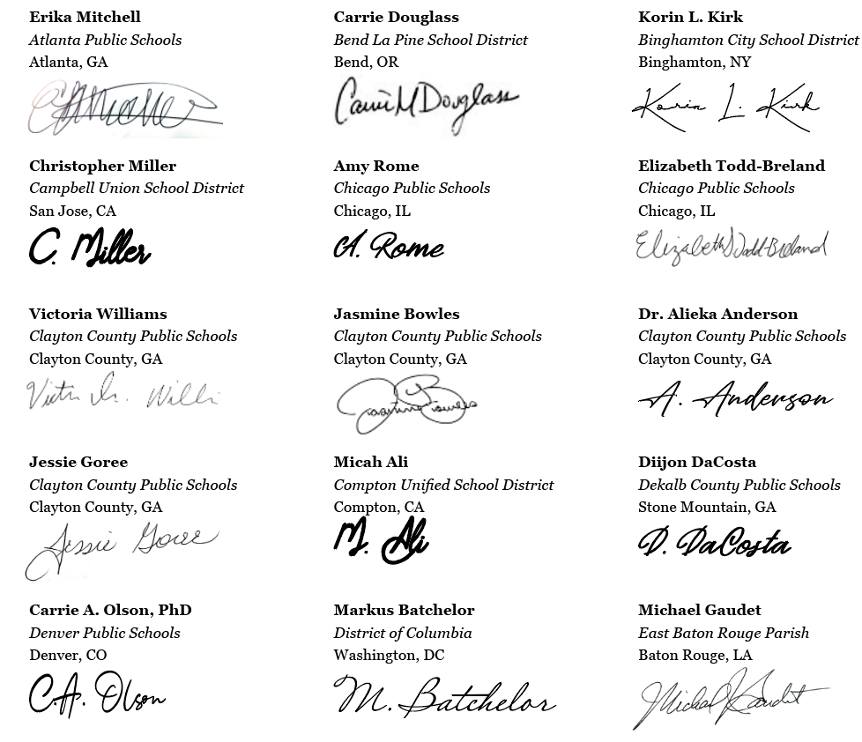 Erika Mitchell
Atlanta Public Schools
Atlanta, GA
Carrie Douglass
Bend La Pine School District
Bend, OR
Carrie M Douglass
Korin L. Kirk
Binghamton City School District
Binghamton, NY
Korin L. Kirk
Christopher Miller
Campbell Union School District
San Jose, CA
C. Miller
Amy Rome
Chicago Public Schools
Chicago, IL
A. Rome
Elizabeth Todd-Breland
Chicago Public Schools
Chicago, IL
Elizabeth Todd-Breland
Victoria Williams
Clayton County Public Schools
Clayton County, GA
Jasmine Bowles
Clayton County Public Schools
Clayton County, GA
Jasmine Bowles
Dr. Alieka Anderson
Clayton County Public Schools
Clayton County, GA
A. Anderson
Jessie Goree
Clayton County Public Schools
Clayton County, GA
Jessie Goree
Micah Ali
Compton Unified School District
Compton, CA
M. Ali
Diijon DaCosta
Dekalb County Public Schools
Stone Mountain, GA
D. DaCosta
Carrie A. Olson, PhD
Denver Public Schools
Denver, CO
C.A. Olson
Markus Batchelor
District of Columbia
Washington, DC
M. Batchelor
Michael Gaudet
East Baton Rouge Parish
Baton Rouge, LA
Michael Gaudet